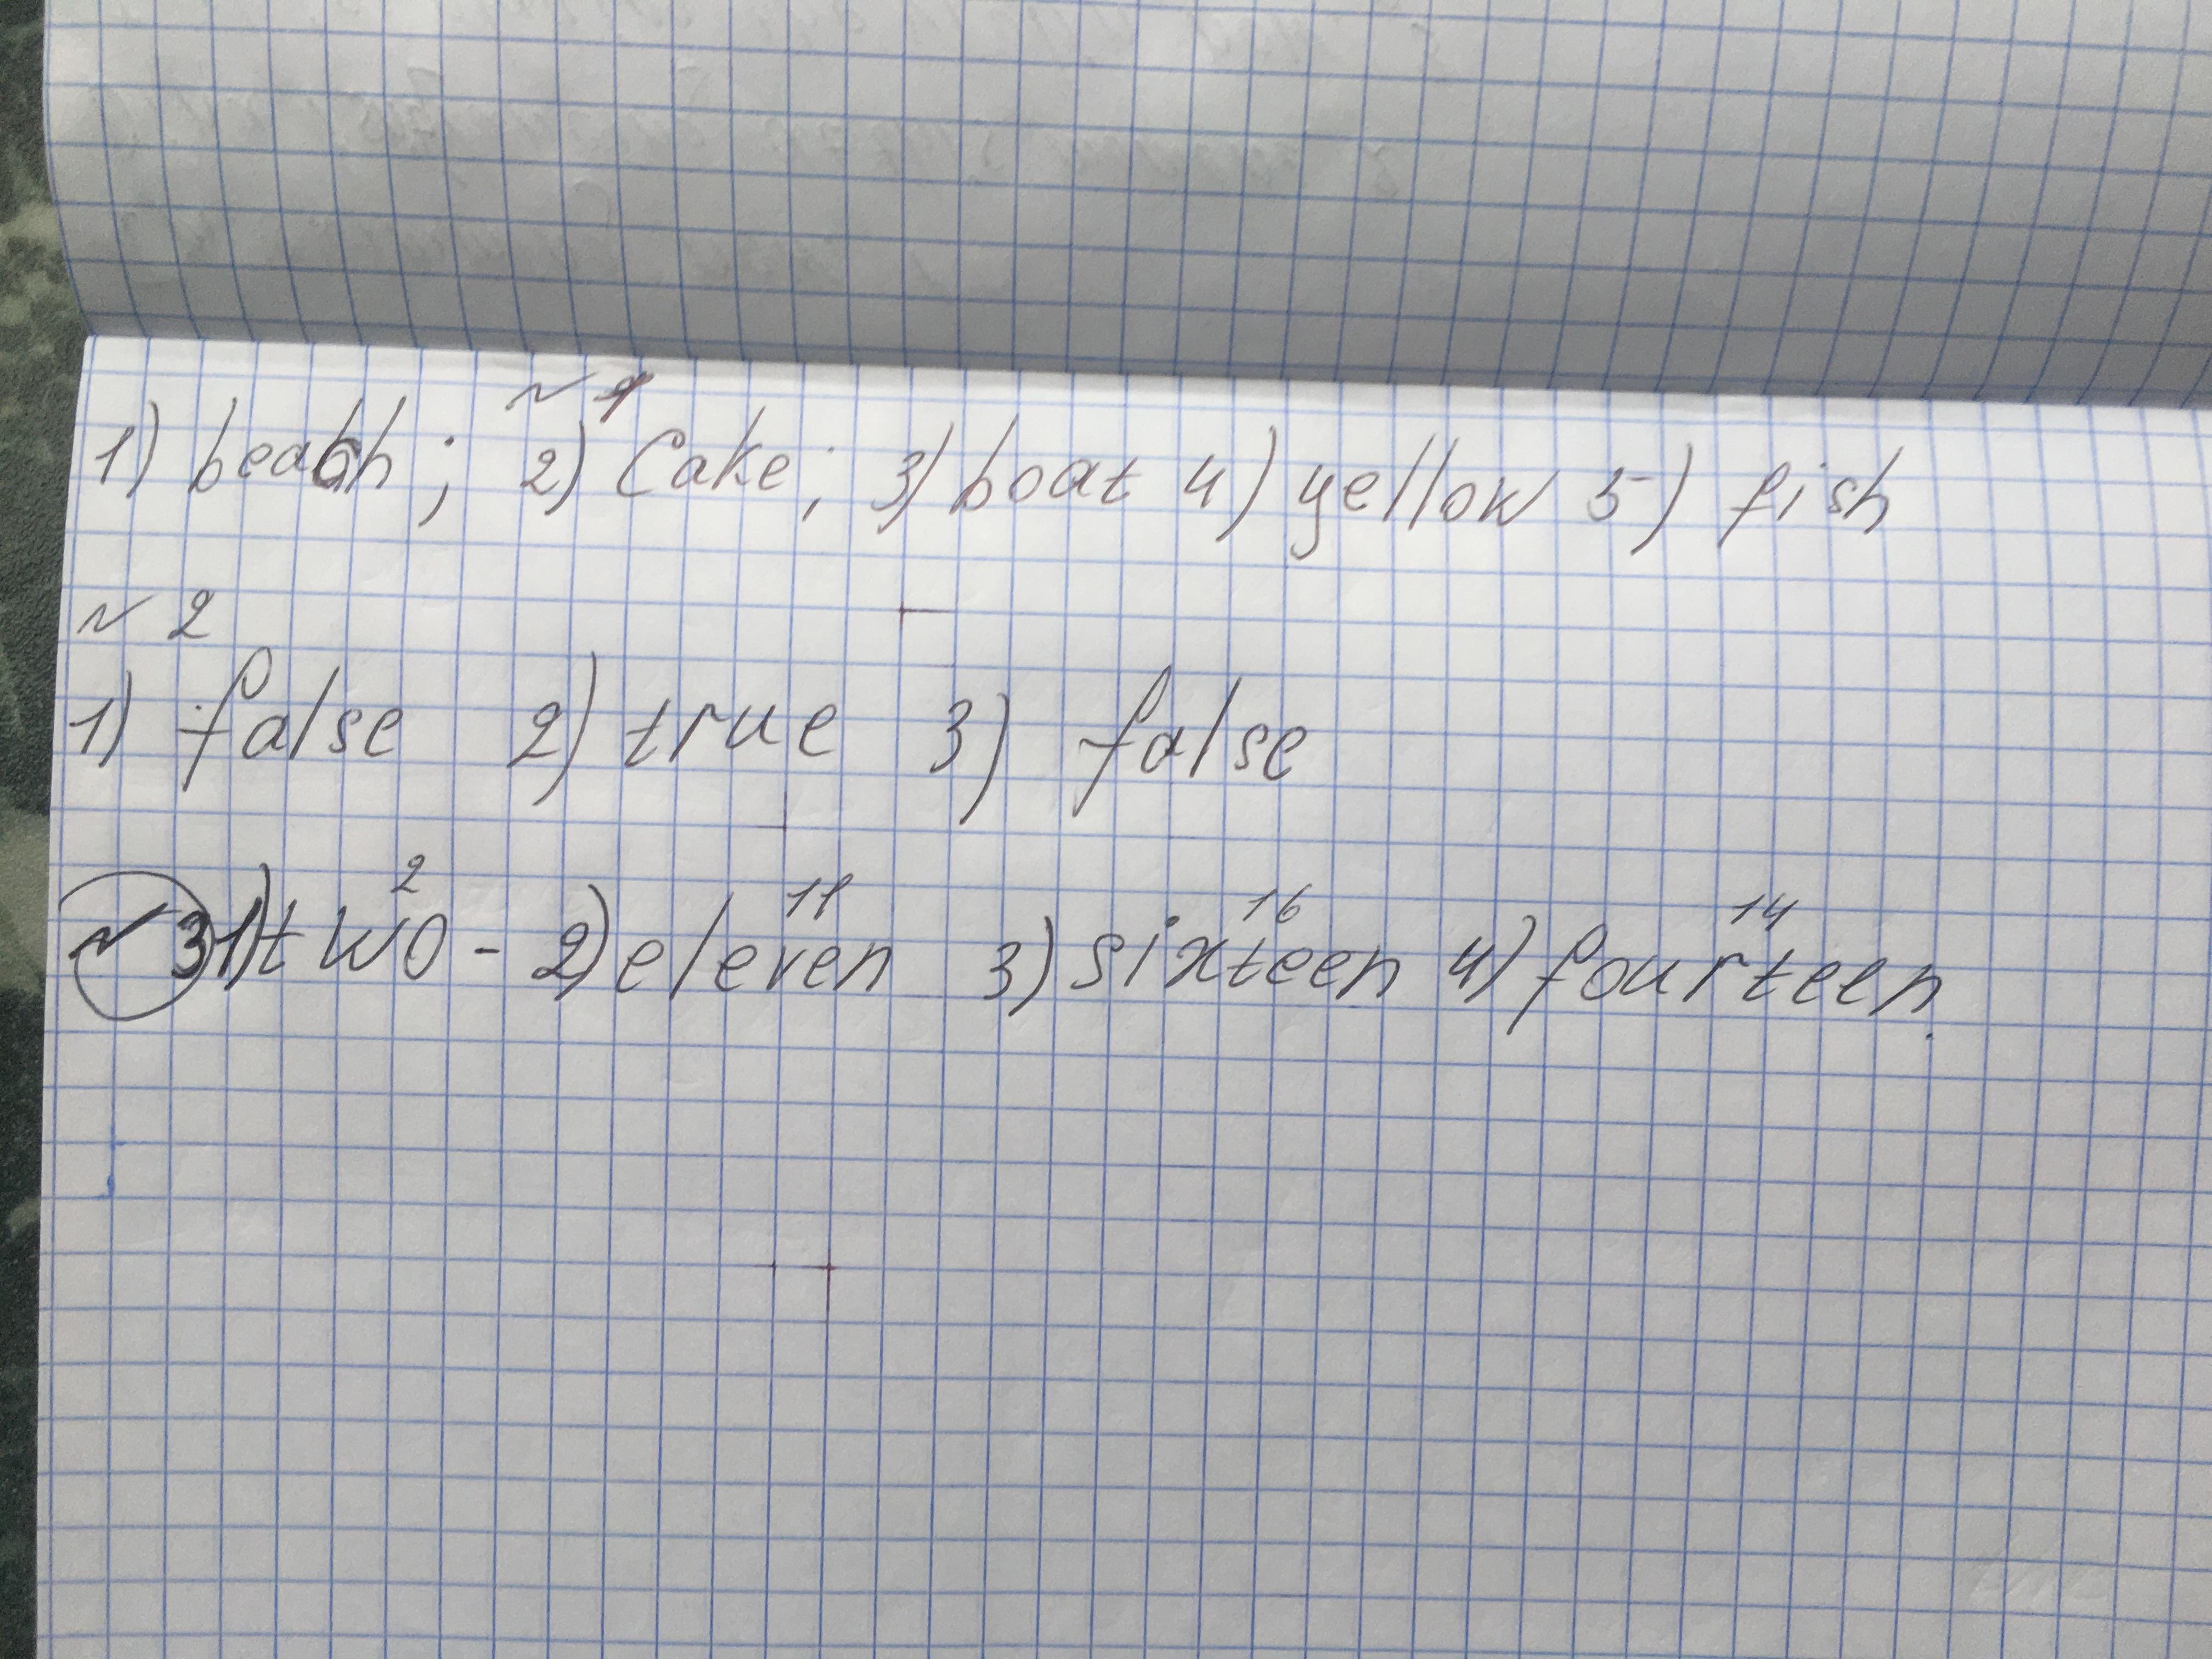 № 1
1) beach; 2) Cake; 3) boat 4) yellow 5) fish
№ 2
1) false 2) true 3) false
2 11 16 14
№ 3 1) two - 2) eleven 3) sixteen 4) fourteen.